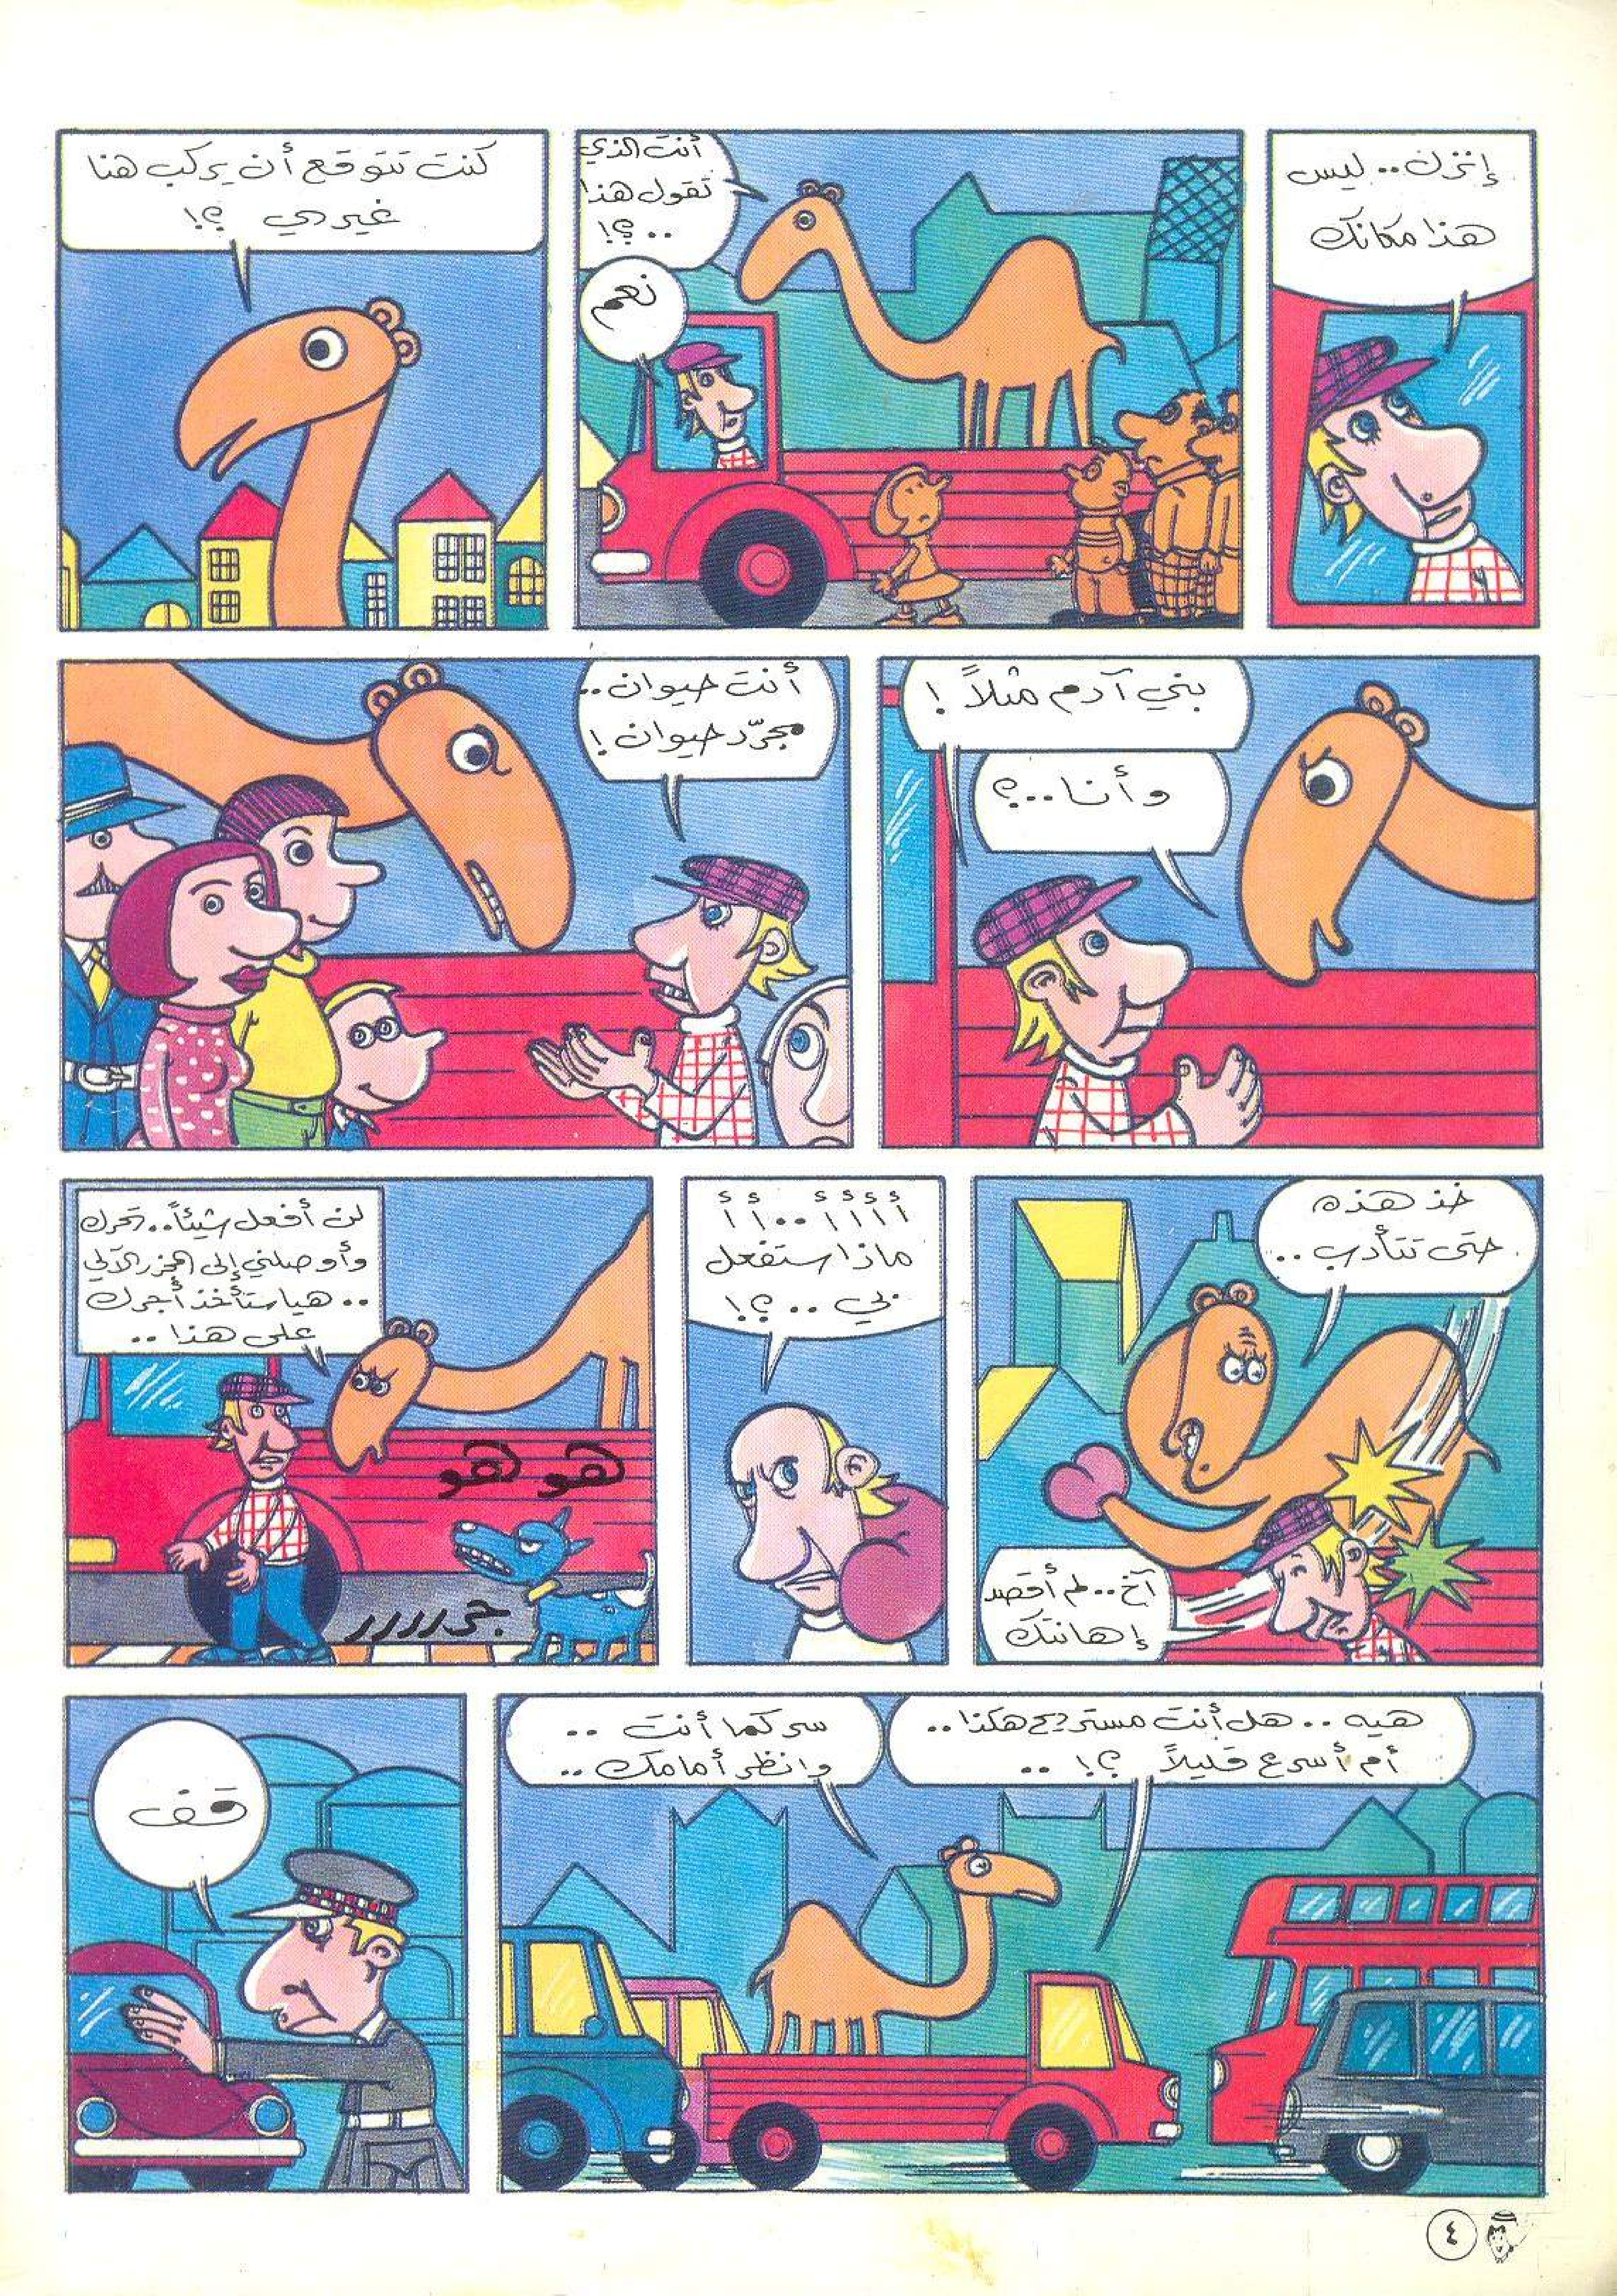 إنزل.. ليس
هذا مكانك
أنت الذي
تقول هذا
..؟!
نعم
كنت تتوقع أن يركب هنا
غيري ؟!
بني آدم مثلاً !
وأنا...؟
أنت حيوان..
مجرّد حيوان !
خذ هذه
حتى تتأدب ..
آخ.. لم أقصد
إهانتك
أأأأ..أأ
ماذا ستفعل
بي ..؟!
لن أفعل شيئاً.. تحرك
وأوصلني إلى المخزر الآلي
.. هيا ستأخذ أجرك
على هذا ..
هو هو
جررررر
هيه .. هل أنت مستريح هكذا..
أم أسرع قليلاً ؟! ..
سر كما أنت ..
وانظر أمامك ..
قف
٤